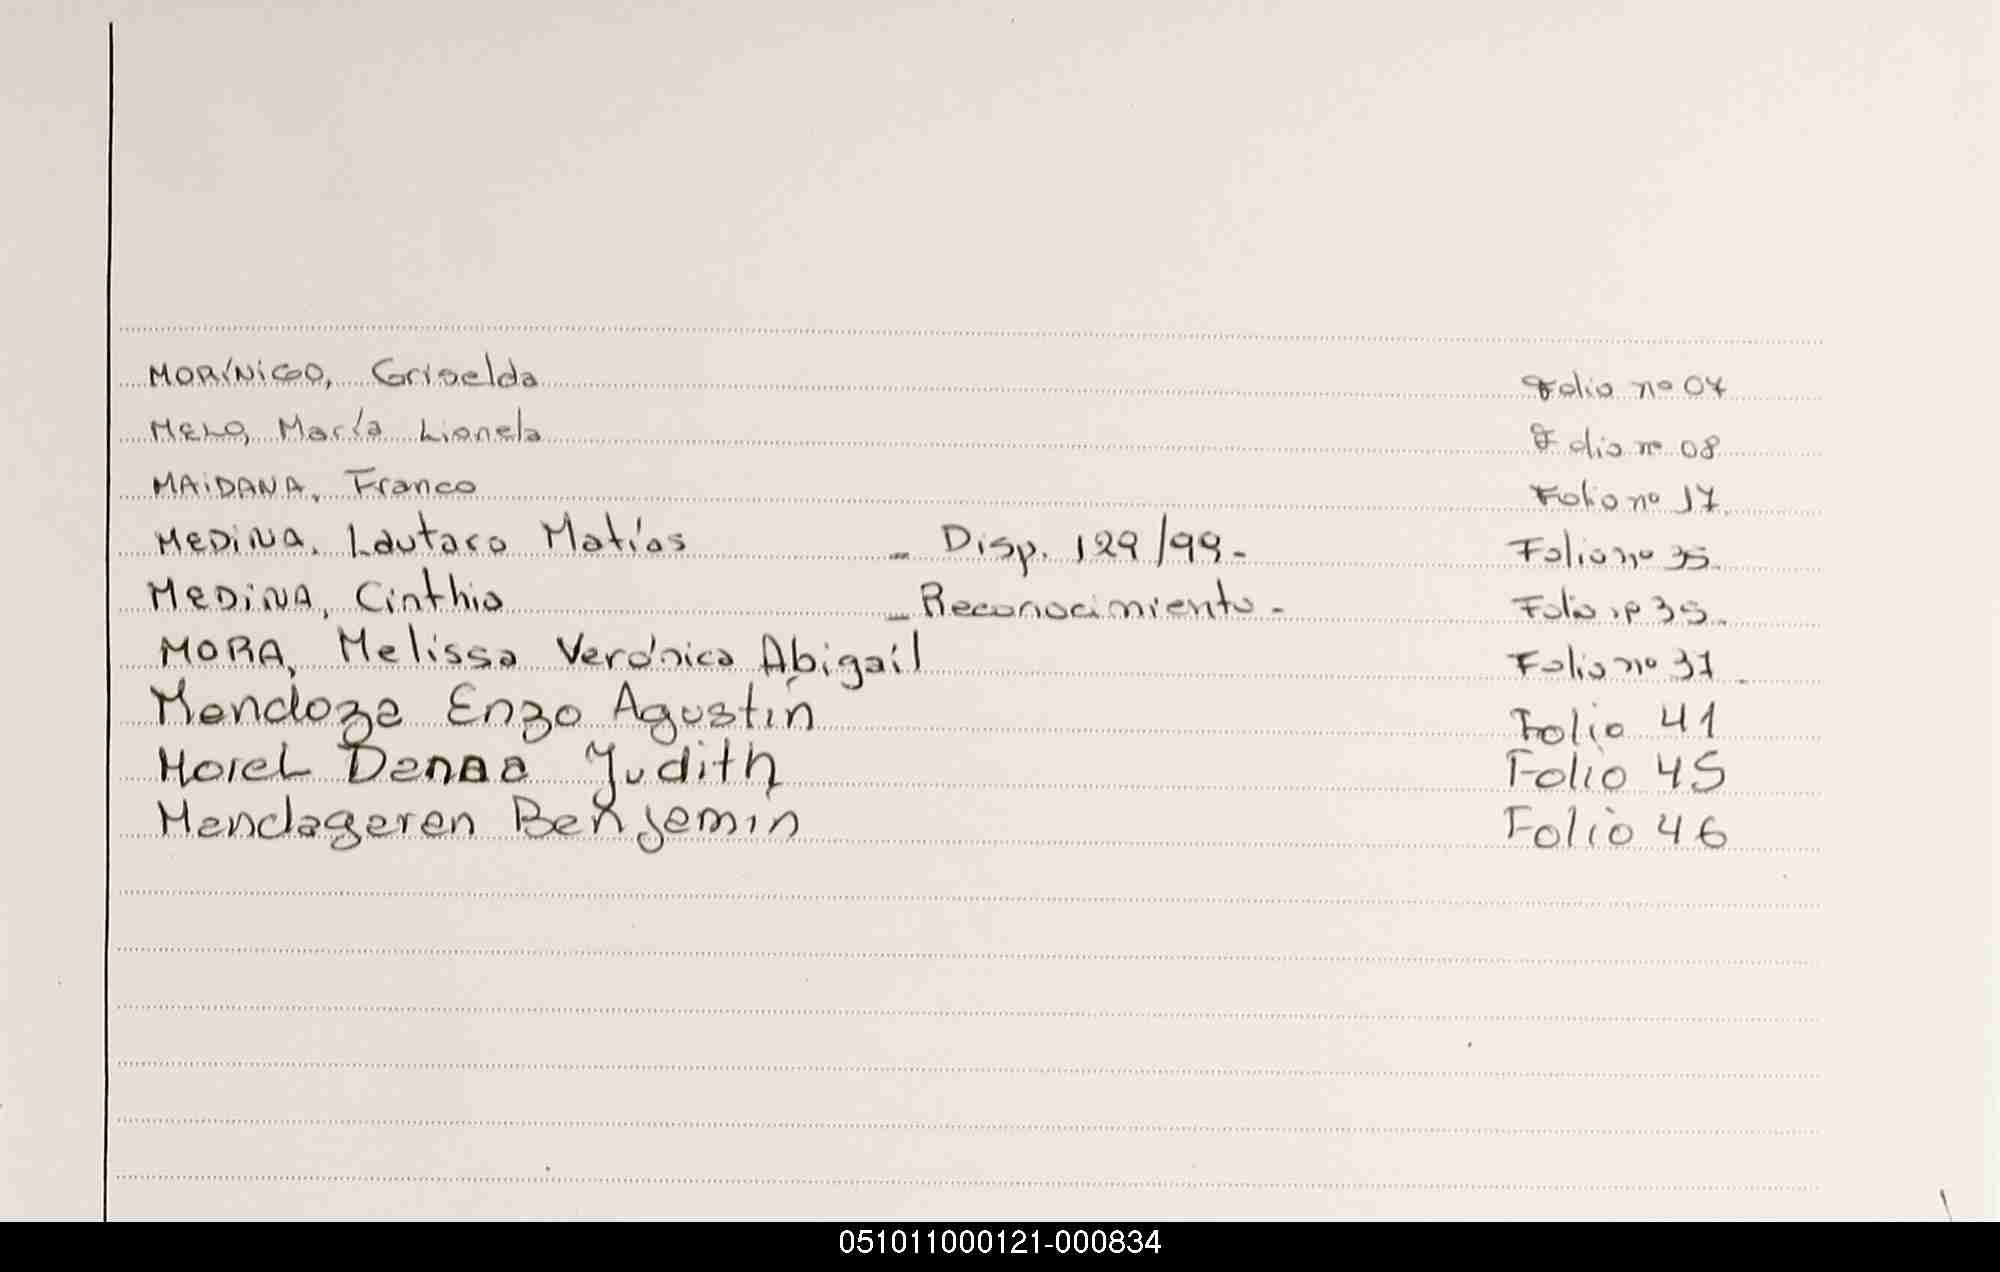 MORÍNIGO, Griselda Folio nº 07
MELO, María Lionela Folio nº 08
MAIDANA, Franco Folio nº 17
MEDINA, Lautaro Matías - Disp. 129/99.- Folio nº 35.
MEDINA, Cinthia - Reconocimiento.- Folio nº 35.
MORA, Melissa Verónica Abigaíl Folio nº 37.
Mendoza Enzo Agustín Folio 41
Morel Danaa Judith Folio 45
Mandageren Benjamin Folio 46
051011000121-000834